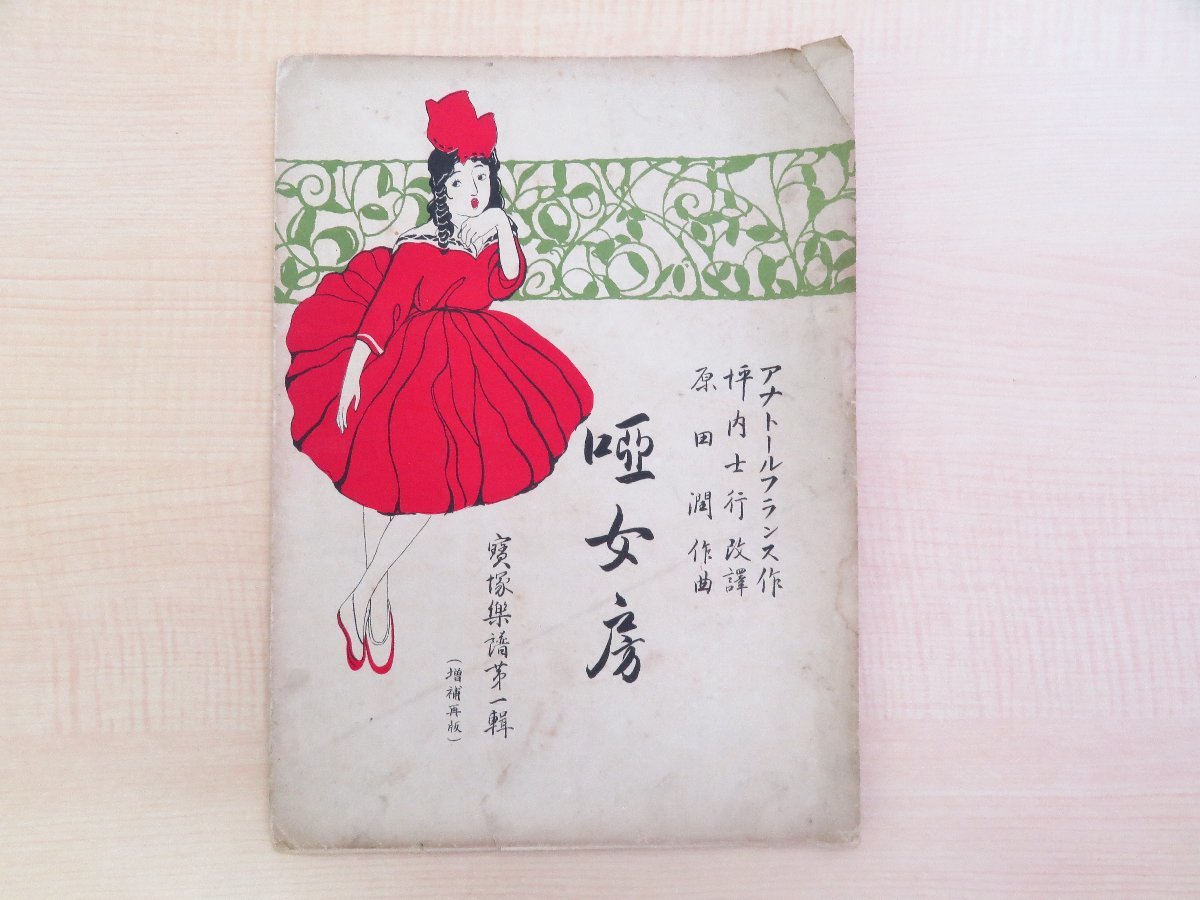 アナトールフランス作
坪内士行改譯
原田潤作曲
啞女房
寳塚樂譜第一輯
(增補再版)